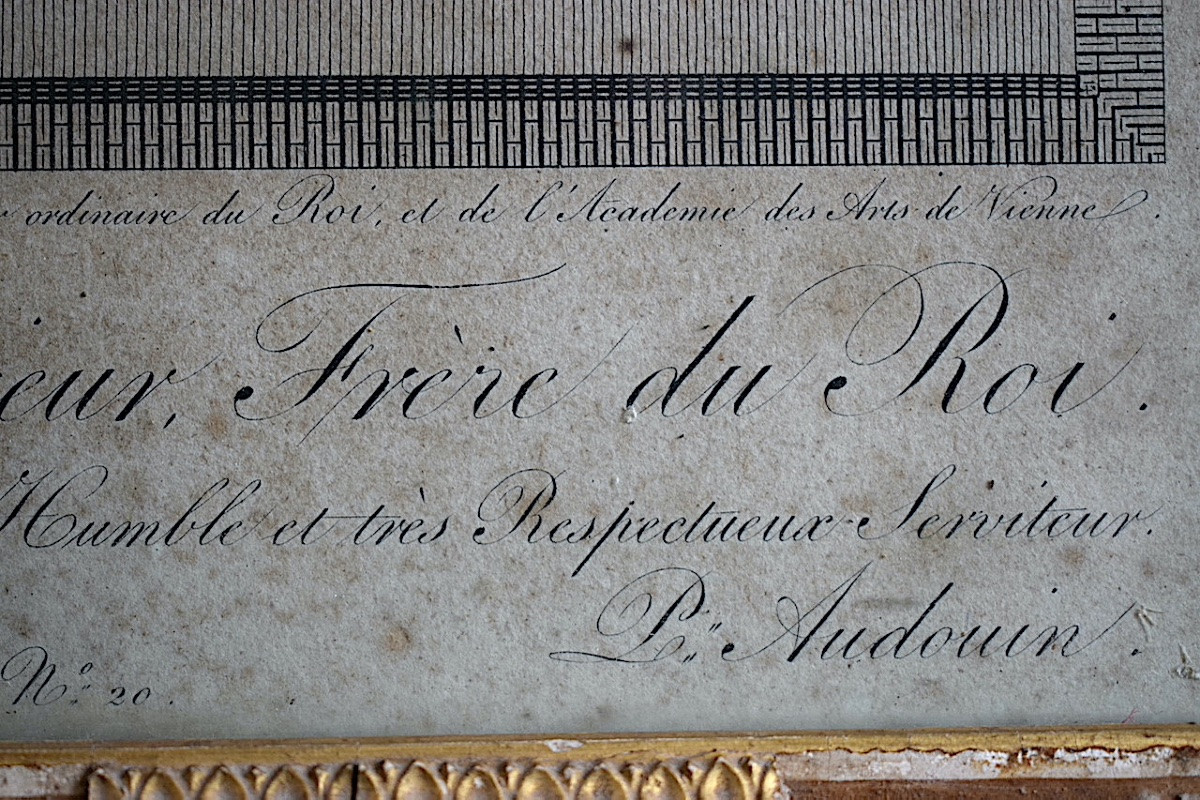 ordinaire du Roi, et de l'Academie des Arts de Vienne.
ieur, Frère du Roi.
Humble et très Respectueux Serviteur.
P.re Audouin.
N.o 20.